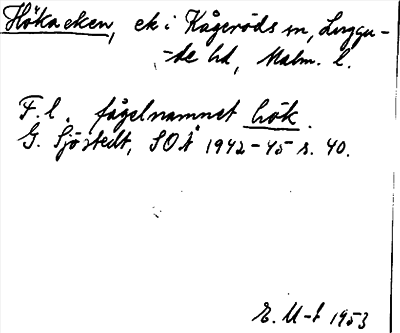 Hökaeken, ek i Kågeröds sn, Luggu-
-de hd, Malm. l.
F. l. fågelnamnet hök.
G. Sjöstedt, SOÅ 1942-45 s. 40.
E. M-t 1953